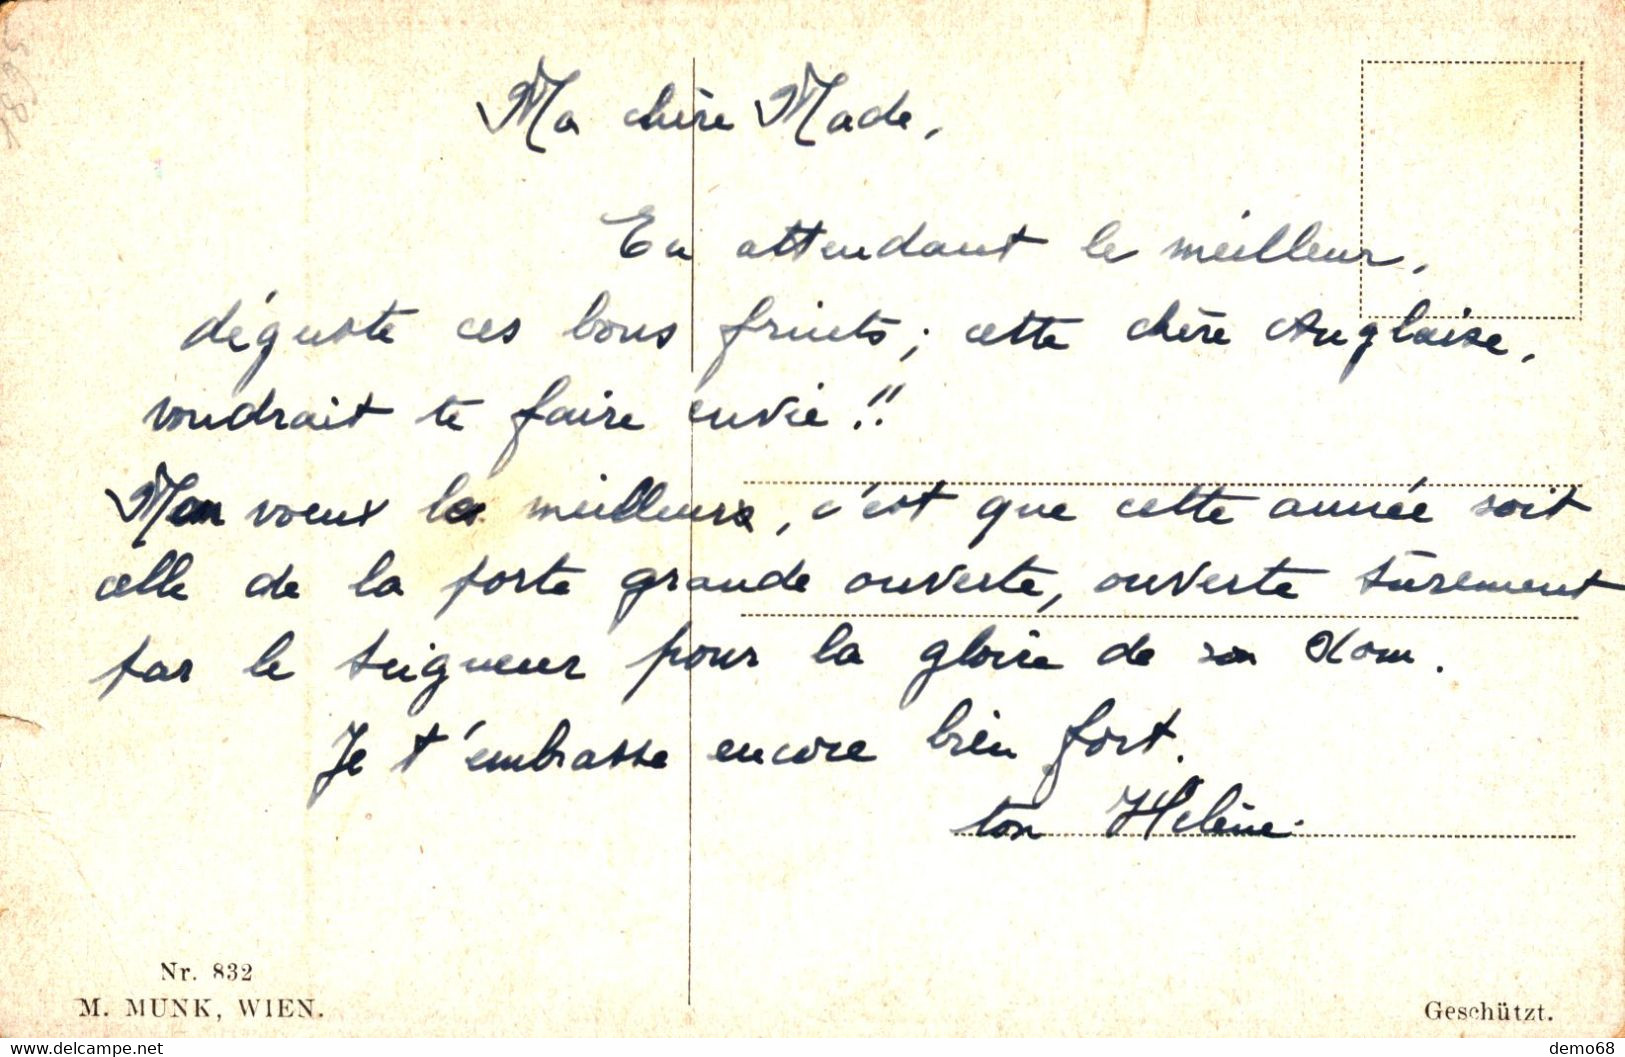 Ma chère Made,
En attendant le meilleur,
déguste ces bons fruits; cette chère Anglaise,
voudrait te faire envie!!
Mon voeux le meilleurs, c'est que cette année soit
celle de la porte grande ouverte, ouverte sûrement
par le Seigneur pour la gloire de son Nom.
Je t'embrasse encore bien fort.
ton Hélène.
Nr. 832
M. MUNK, WIEN.
Geschützt.
www.delcampe.net
demo68